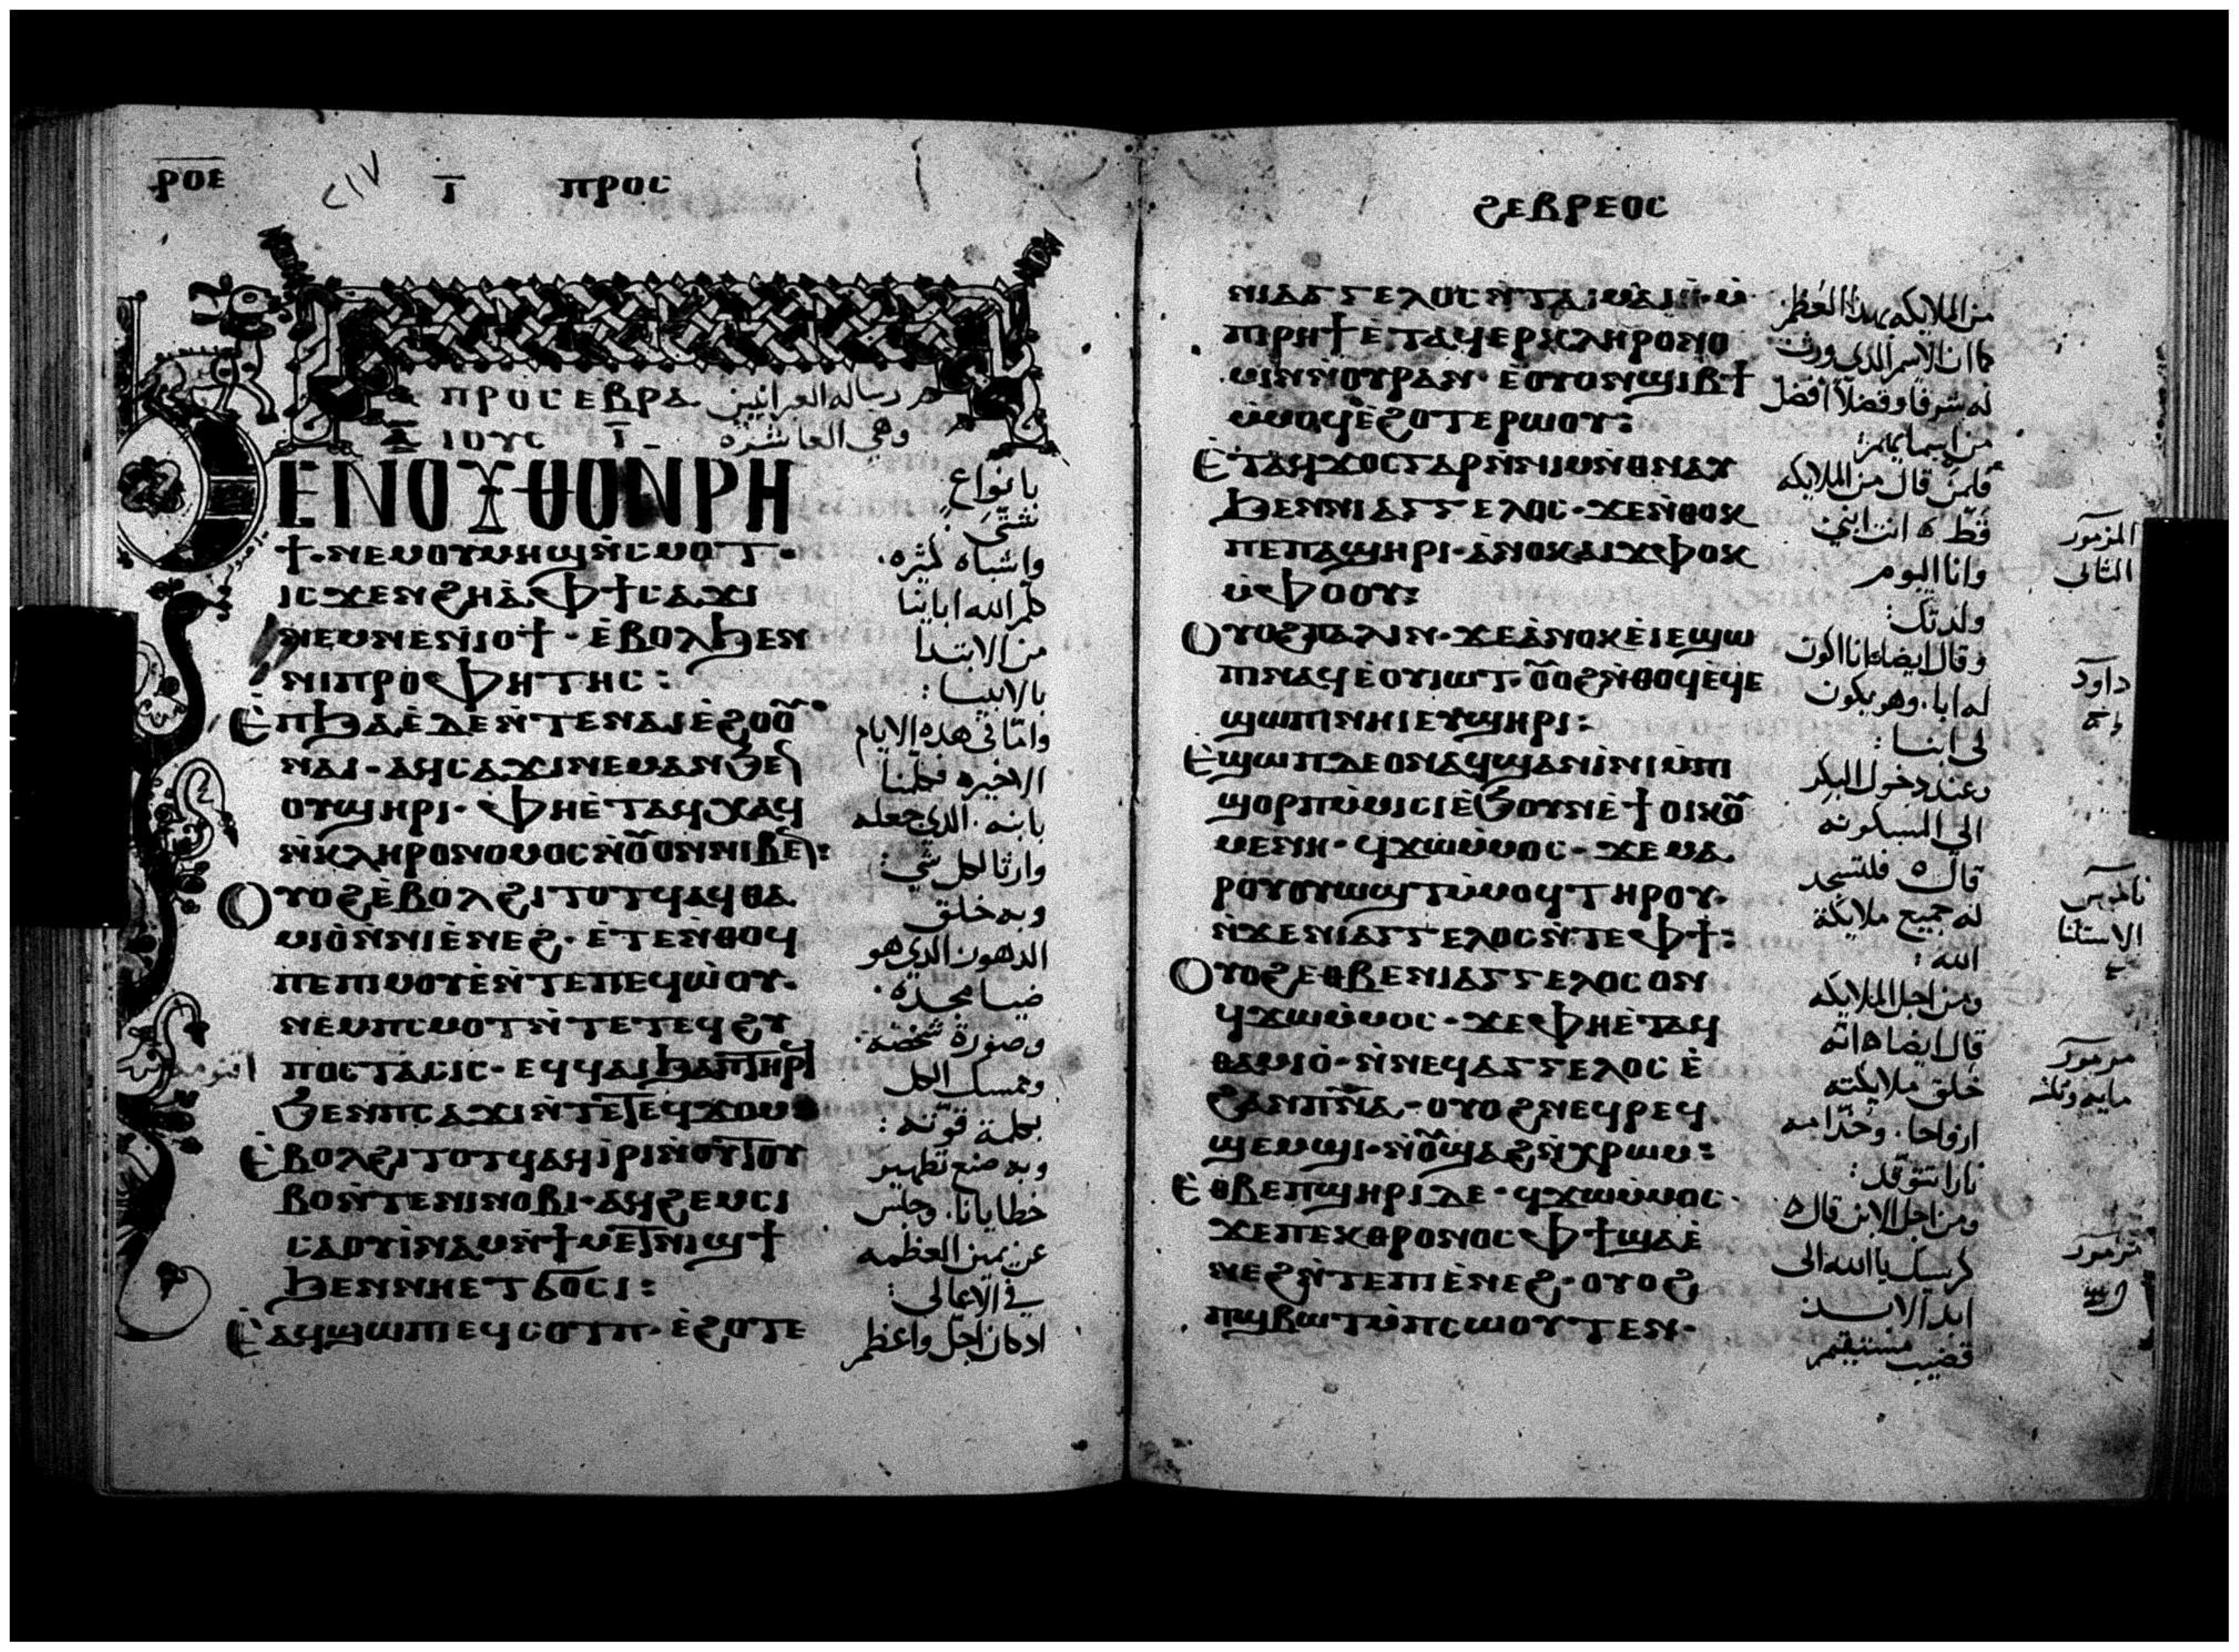 ⲣⲟⲉ
CIV
ⲓ̅ ⲡⲣⲟⲥ
ⲡⲣⲟⲥⲉⲃⲣⲁ رساله العبرانيين
ⲓⲟⲩⲥ ⲓ̅ وهي العاشره
ⲉⲛⲟⲩⲑⲟⲛⲣⲏ
ϯ·ⲛⲉⲙⲟⲩⲙⲏϣⲛ̀ⲥⲙⲟⲧ·
ⲓⲥϫⲉⲛϩⲏⲁ̀ⲫϯⲥⲁϫⲓ
ⲛⲉⲙⲛⲉⲛⲓⲟϯ·ⲉ̀ⲃⲟⲗϧⲉⲛ
ⲛⲓⲡⲣⲟⲫⲏⲧⲏⲥ:
ⲉ̀ⲡϧⲁⲉ̀ⲇⲉⲛ̀ⲧⲉⲛⲁⲓⲉ̀ϩⲟⲟ̅
ⲛⲁⲓ·ⲁϥⲥⲁϫⲓⲛⲉⲙⲁⲛϧⲉ̅
ⲟⲩϣⲏⲣⲓ·ⲫⲏⲉ̀ⲧⲁϥⲭⲁϥ
ⲛ̀ⲕⲗⲏⲣⲟⲛⲟⲙⲟⲥⲛ̀ⲟ̅ⲟⲛⲛⲓⲃⲉ̅:
ⲟⲩⲟϩⲉ̀ⲃⲟⲗϩⲓⲧⲟⲧϥⲁϥⲑⲁ
ⲙⲓⲟ̀ⲛ̀ⲛⲓⲉ̀ⲛⲉϩ·ⲉ̀ⲧⲉⲛ̀ⲑⲟϥ
ⲡⲉⲡⲓⲙⲟⲩⲉ̀ⲛ̀ⲧⲉⲡⲉϥⲱ̀ⲟⲩ·
ⲛⲉⲙⲡⲥⲙⲟⲧⲛ̀ⲧⲉⲧⲉϥϩⲩ
ⲡⲟⲥⲧⲁⲥⲓⲥ·ⲉϥϥⲁⲓϧⲁⲡ̅ⲧⲏⲣϥ
ϧⲉⲛⲡⲥⲁϫⲓⲛ̀ⲧⲉⲧⲉϥϫⲟⲙ
ⲉ̀ⲃⲟⲗϩⲓⲧⲟⲧϥⲁϥⲓ̀ⲣⲓⲛ̀ⲟⲩⲧⲟⲩ
ⲃⲟⲛ̀ⲧⲉⲛⲓⲛⲟⲃⲓ·ⲁϥϩⲉⲙⲥⲓ
ⲥⲁⲟⲩⲓ̀ⲛⲁⲙⲛ̀ϯⲙⲉⲧⲛⲓϣϯ
ϧⲉⲛⲛⲏⲉⲧϭⲟⲥⲓ:
ⲉ̀ⲁϥϣⲱⲡⲓⲉϥⲥⲟⲧⲡ·ⲉ̀ϩⲟⲧⲉ
بانواع
شتي
واشباه كثيره
كلم الله اباينا
من الابتدا
بالانبيا:
وامّا في هذه الايام
الاخيره فكلمنا
بابنه. الذي جعله
وارثا لكل شي:
وبه خلق
الدهون الذي هو
ضيا مجده.
وصورة شخصه.
ويمسك الكل
بكلمة قوّته:
وبه صنع تطهير
خطايانا. وجلس
عن يمين العظمه
في الاعالي:
اذ كان اجلّ واعظم
ϩⲉⲃⲣⲉⲟⲥ
ⲛⲓⲁⲅⲅⲉⲗⲟⲥⲛ̀ⲧⲁⲓⲙⲁⲓⲏ·ⲙ̀
ⲡⲓⲣⲏϯⲉ̀ⲧⲁϥⲉⲣⲕⲗⲏⲣⲟⲛⲟ
ⲙⲓⲛⲛ̀ⲟⲩⲣⲁⲛ·ⲉⲟⲩⲟⲛϣⲓⲃϯ
ⲙ̀ⲙⲟϥⲉ̀ϩⲟⲧⲉⲣⲱⲟⲩ:
ⲉ̀ⲧⲁϥϫⲟⲥⲅⲁⲣⲛ̀ⲛⲓⲙⲛ̀ⲑⲛⲁⲩ
ϧⲉⲛⲛⲓⲁⲅⲅⲉⲗⲟⲥ·ϫⲉⲛ̀ⲑⲟⲕ
ⲡⲉⲡⲁϣⲏⲣⲓ·ⲁ̀ⲛⲟⲕⲁⲓϫⲫⲟⲕ
ⲙ̀ⲫⲟⲟⲩ:
ⲟⲩⲟϩⲡⲁⲗⲓⲛ·ϫⲉⲁ̀ⲛⲟⲕⲉ̀ⲓⲉϣⲱ
ⲡⲓⲛⲁϥⲉ̀ⲟⲩⲓⲱⲧ·ⲟ̅ⲟϩⲛ̀ⲑⲟϥⲉ̀ϥⲉ
ϣⲱⲡⲓⲛⲏⲓⲉⲩϣⲏⲣⲓ:
ⲉ̀ϣⲱⲡⲇⲉⲟⲛⲁϥϣⲁⲛⲓ̀ⲛⲓⲙ̀ⲡⲓ
ϣⲟⲣⲡⲙ̀ⲙⲓⲥⲓⲉ̀ϧⲟⲩⲛⲉ̀ϯⲟⲓⲕⲟ̅
ⲙⲉⲛⲏ·ϥϫⲱⲙ̀ⲙⲟⲥ·ϫⲉⲙⲁ
ⲣⲟⲩⲟⲩⲱϣⲧⲙ̀ⲙⲟϥⲧⲏⲣⲟⲩ·
ⲛ̀ϫⲉⲛⲓⲁⲅⲅⲉⲗⲟⲥⲛ̀ⲧⲉⲫϯ:
ⲟⲩⲟϩⲉⲑⲃⲉⲛⲓⲁⲅⲅⲉⲗⲟⲥⲟⲛ
ϥϫⲱⲙ̀ⲙⲟⲥ·ϫⲉⲫⲏⲉ̀ⲧⲁϥ
ⲑⲁⲙⲓⲟ̀·ⲛ̀ⲛⲉϥⲁⲅⲅⲉⲗⲟⲥⲉ̀
ϩⲁⲛⲡ̅ⲛ̅ⲁ·ⲟⲩⲟϩⲛⲉϥⲣⲉϥ
ϣⲉⲙϣⲓ·ⲛ̀ⲟ̅ϣⲁϩⲛ̀ⲭⲣⲱⲙ:
ⲉ̀ⲑⲃⲉⲡϣⲏⲣⲓⲇⲉ·ϥϫⲱⲙ̀ⲙⲟⲥ·
ϫⲉⲡⲉⲕⲑⲣⲟⲛⲟⲥⲫϯϣⲁⲉ̀
ⲛⲉϩⲛ̀ⲧⲉⲡⲓⲉ̀ⲛⲉϩ·ⲟⲩⲟϩ
ⲡϣⲃⲱⲧⲙ̀ⲡⲥⲱⲟⲩⲧⲉⲛ·
من الملايكه بهذا العظم
كما ان الاسم الذي ورث
له شرفا وفضلا افضل
من اسمايهم:
فلمن قال من الملايكه
قطّ انت ابني
وانا اليوم
ولدتك:
وقال ايضا انا اكون
له ابا. وهو يكون
لي ابنا:
وعند دخول البكر
الي المسكونه
قال فلتسجد
له جميع ملايكة
الله:
ومن اجل الملايكه
قال ايضا انّه
خلق ملايكته
ارواحا. وخدّامه
نارا تتوقّد:
ومن اجل الابن قال
كرسيك يا الله الى
ابد الابد
قضيب مستقيم
المزمور
الثاني
داود
الاستثنا
مزمور
مايه وتلته
مزمور